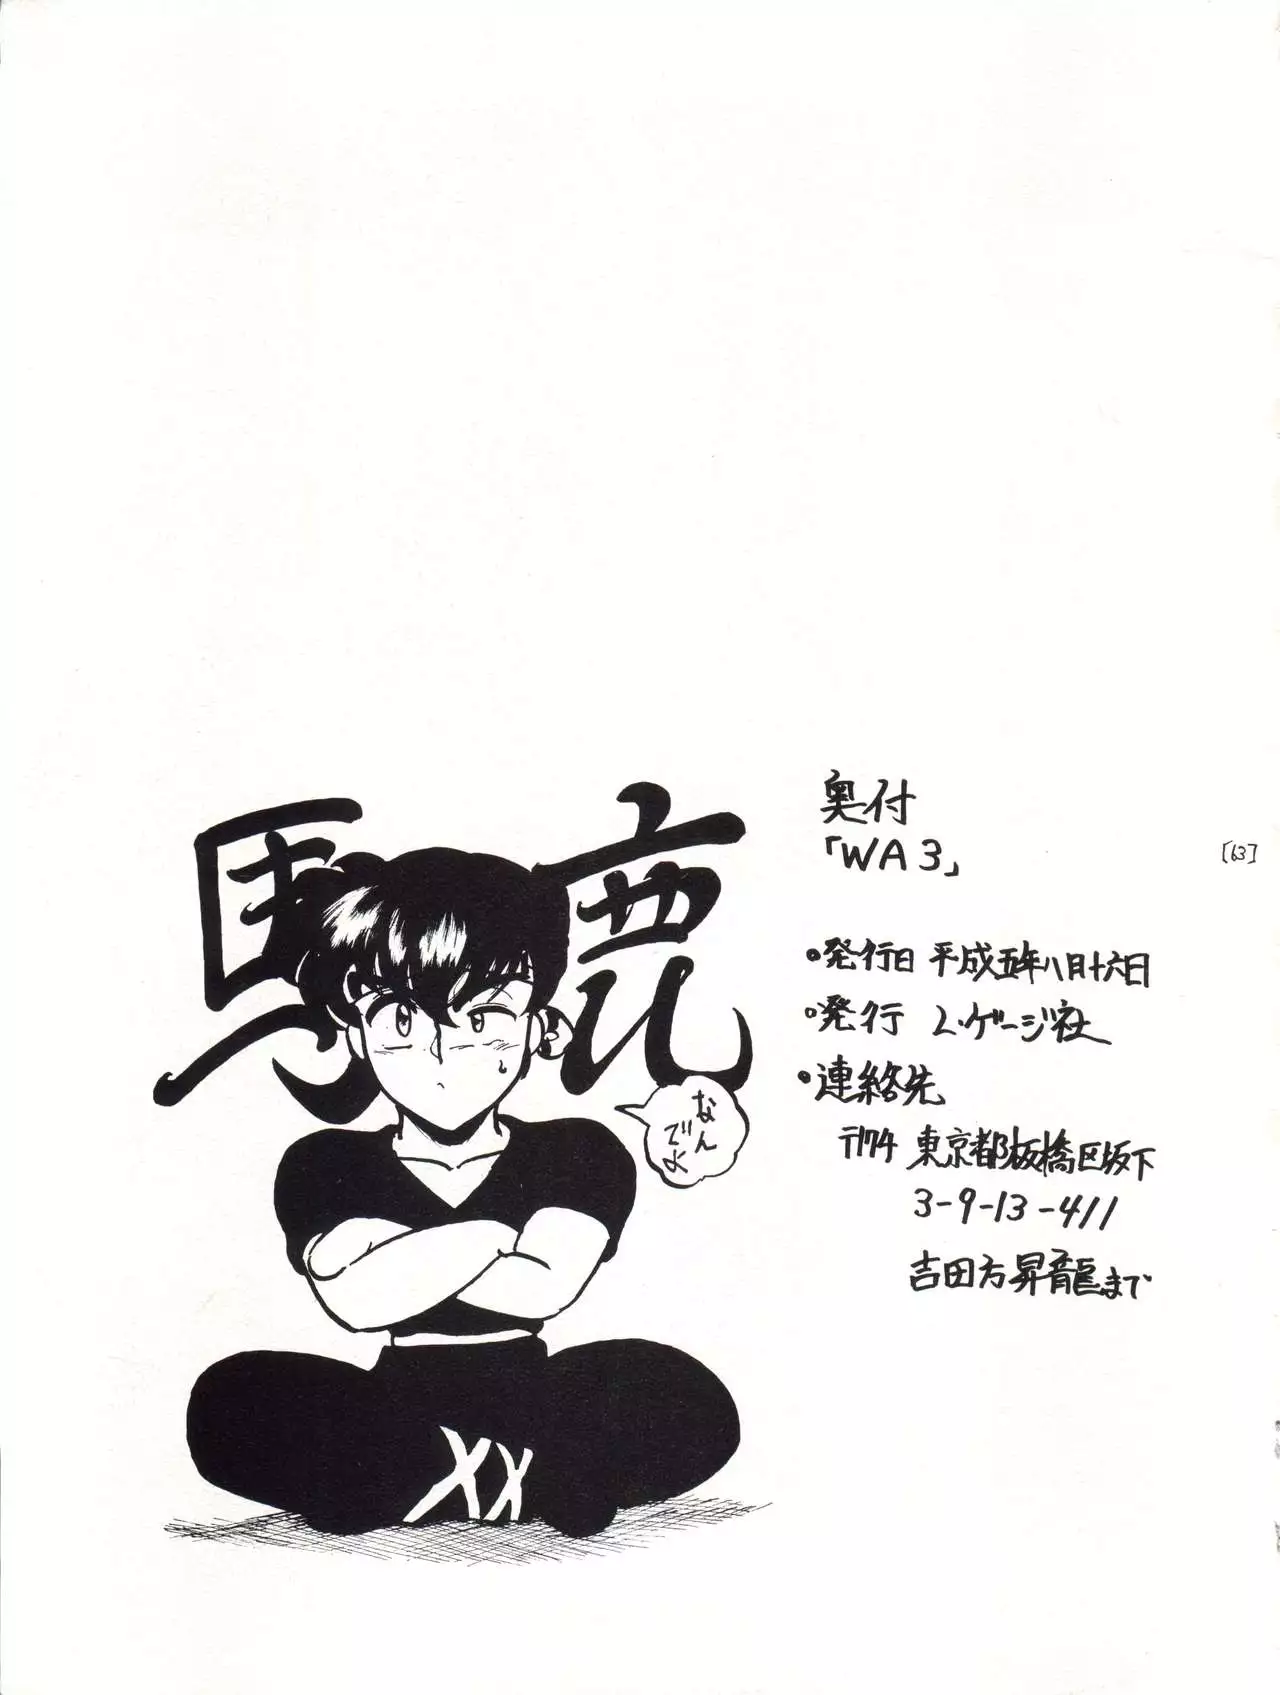 馬鹿
なん
でよ
奥付
「WA3」
[63]
•発行日 平成五年八月十六日
•発行 L・ゲージ社
•連絡先
〒174 東京都板橋区坂下
3-9-13-411
吉田方昇龍まで